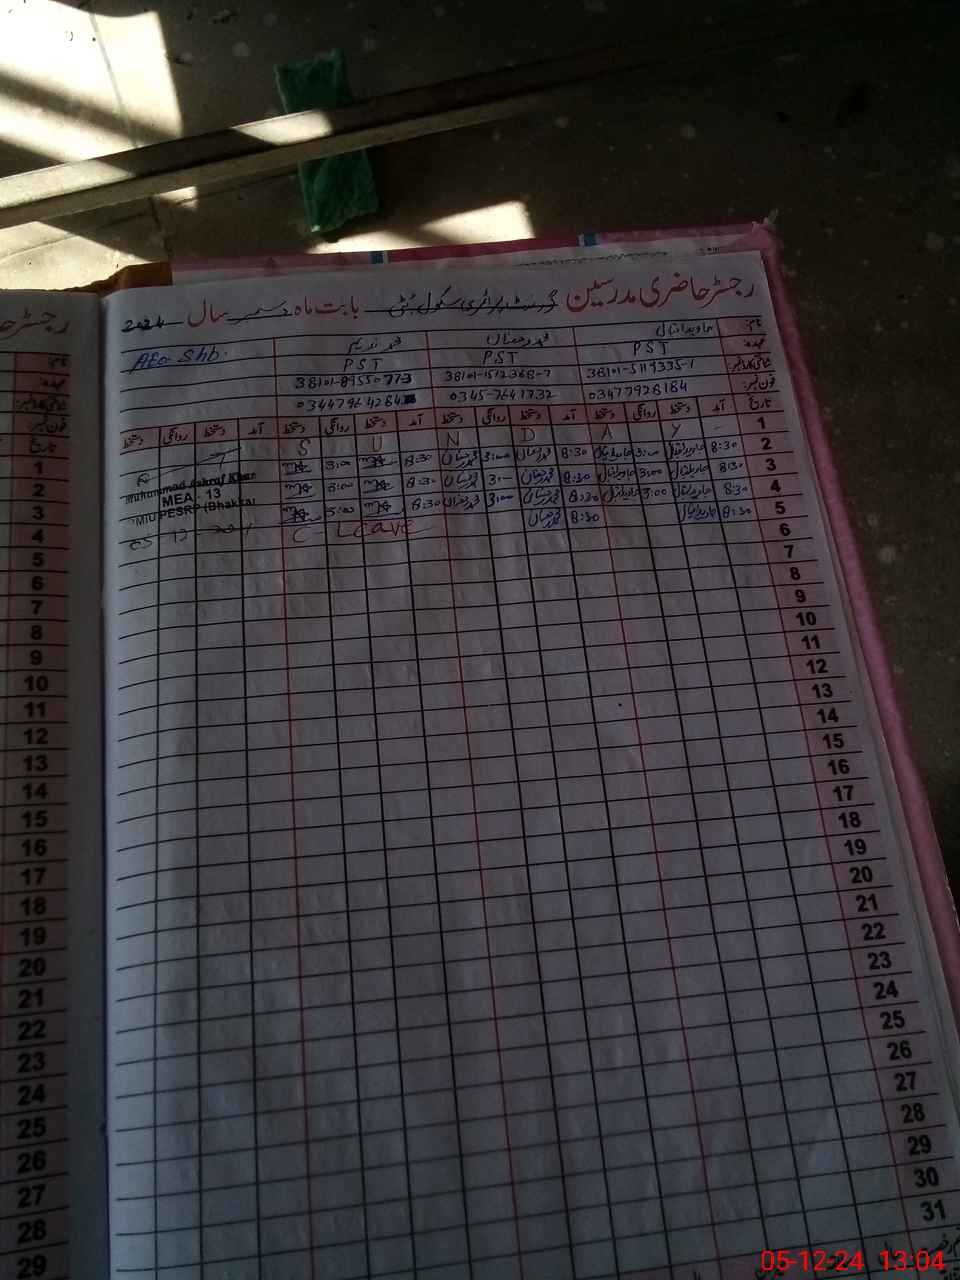 رجسٹر حاضری مدرسین گورنمنٹ پرائمری سکول بابت ماہ دسمبر سال 2024
نام: جاوید اقبال محمد رمضان محمد ندیم AEO Shb.
عہدہ: PST PST PST
شناختی کارڈ نمبر: 38101-5119335-1 38101-1512368-7 38101-8955077-3
فون نمبر: 03477928184 0345-7641732
تاریخ آمد دستخط روانگی دستخط آمد دستخط روانگی دستخط آمد دستخط روانگی دستخط آمد دستخط روانگی دستخط
1 S U N D A Y
2 8:30 جاوید اقبال 3:00 جاوید اقبال 8:30 محمد رمضان 3:00 محمد رمضان 8:30 3:00
3 8:30 جاوید اقبال 3:00 جاوید اقبال 8:30 محمد رمضان 3:00 محمد رمضان 8:30 3:00
4 8:30 جاوید اقبال 3:00 جاوید اقبال 8:30 محمد رمضان 3:00 محمد رمضان 8:30 3:00
5 8:30 جاوید اقبال 8:30 محمد رمضان C-Leave
Muhammad Ashraf Khan
MEA - 13
MIU PESRP (Bhakkar
05-12-2024
6
7
8
9
10
11
12
13
14
15
16
17
18
19
20
21
22
23
24
25
26
27
28
29
30
31
رجسٹر
نام:
عہدہ:
شناختی کارڈ نمبر:
فون نمبر:
تاریخ
1
2
3
4
5
6
7
8
9
10
11
12
13
14
15
16
17
18
19
20
21
22
23
24
25
26
27
28
29
05-12-24 13:04